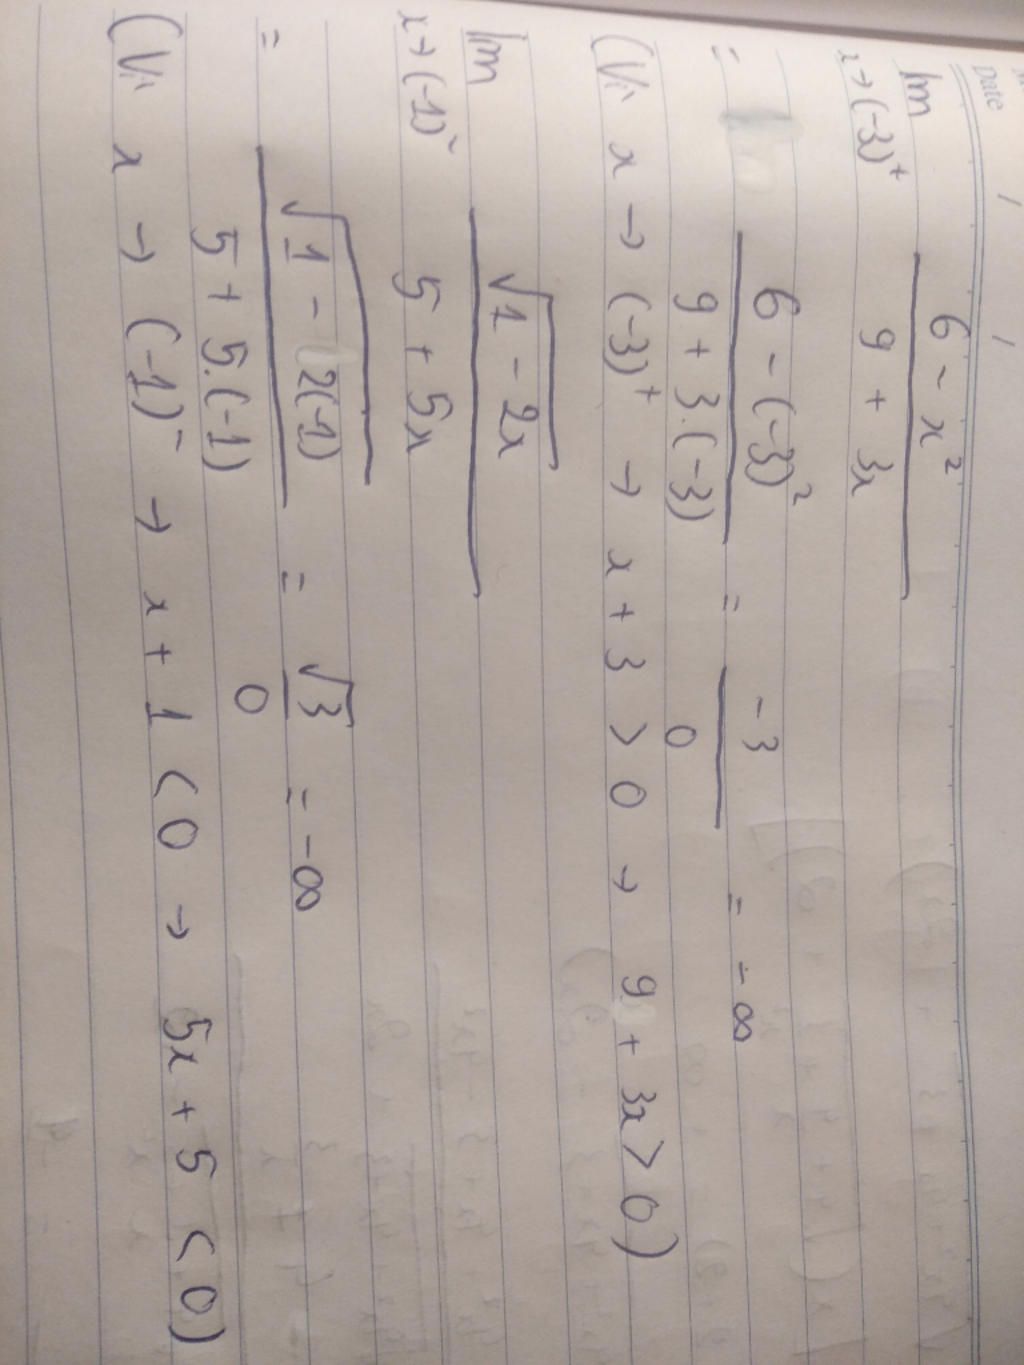 Date / /
lim x→(-3)⁺ (6 - x²)/(9 + 3x)
= (6 - (-3)²)/(9 + 3.(-3)) = -3/0 = -∞
(Vì x → (-3)⁺ → x + 3 > 0 → 9 + 3x > 0)
lim x→(-1)⁻ √(1 - 2x)/(5 + 5x)
= √(1 - 2(-1))/(5 + 5.(-1)) = √3/0 = -∞
(Vì x → (-1)⁻ → x + 1 < 0 → 5x + 5 < 0)